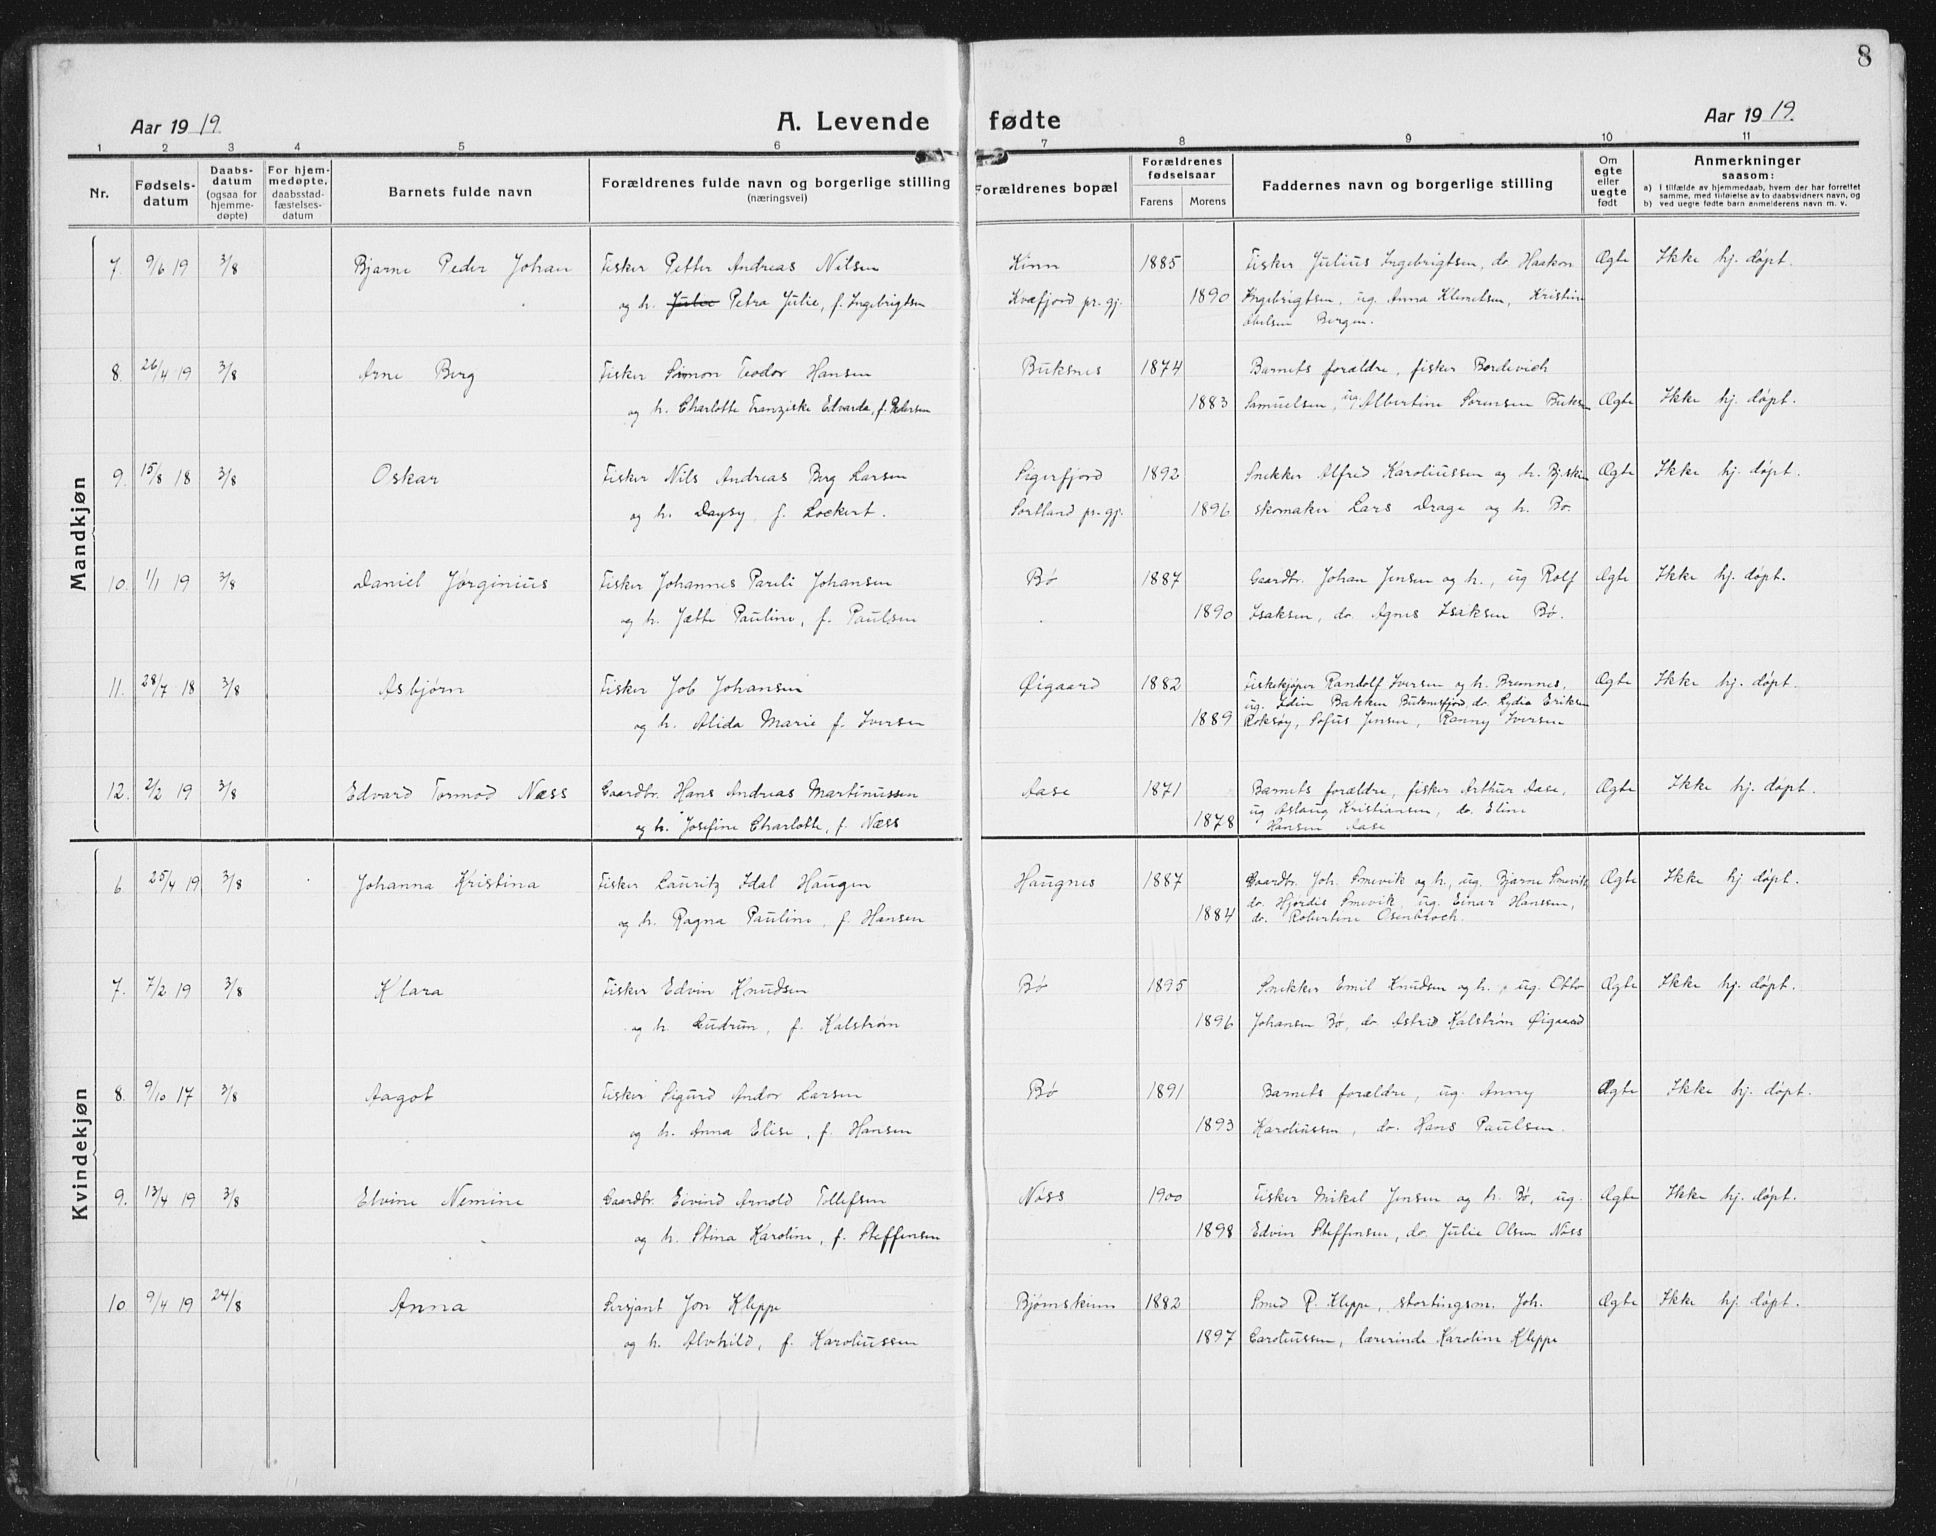 8
Aar 1919
A. Levende fødte
Aar 1919.
1 2 3 4 5 6 7 8 9 10 11
Nr.
Fødsels-
datum
Daabs-
datum
(ogsaa for
hjemme-
døpte)
For hjem-
medøpte,
daabsstad-
fæstelses-
datum
Barnets fulde navn
Forældrenes fulde navn og borgerlige stilling
(næringsvei)
Forældrenes bopæl
Forældrenes
fødselsaar
Farens Morens
Faddernes navn og borgerlige stilling
Om
egte
eller
uegte
født
Anmerkninger
saasom:
a) I tilfælde av hjemmedaab, hvem der har forrettet
samme, med tilføielse av to daabsvidners navn, og
b) ved uegte fødte barn anmelderens navn m. v.
Mandkjøn
7. 9/6 19 3/8 Bjarne Peder Johan Fisker Petter Andreas Nilsen Kinn 1885 Fisker Julius Ingebrigtsen, do. Haakon Ægte Ikke hj. døpt.
og h. Julie Petra Julie, f. Ingebrigtsen Kvæfjord pr. gj. 1890 Ingebrigtsen, ug. Anna Klemetsen, Kristine
Abelsen Bergen.
8. 26/4 19 3/8 Arne Berg Fisker Simon Teodor Hansen Buksnes 1874 Barnets forældre, fisker Bordevich
og h. Charlotte Franziske Edvarda, f. Pedersen 1883 Samuelsen, ug. Albertine Sørensen Buksn Ægte Ikke hj. døpt.
9. 15/8 18 3/8 Oskar Fisker Nils Andreas Berg Larsen Sigerfjord 1892 Snekker Alfred Karoliussen og h. Bj.skin Ægte Ikke hj. døpt.
og h. Daysy, f. Lockert. Sortland pr. gj. 1896 skomaker Lars Drage og h. Bø.
10. 1/1 19 3/8 Daniel Jørginius Fisker Johannes Pareli Johansen Bø 1887 Gaardbr. Johan Jensen og h., ug Rolf Ægte Ikke hj. døpt.
og h. Jætte Pauline, f. Paulsen 1890 Isaksen, do. Agnes Isaksen Bø.
11. 28/7 18 3/8 Asbjørn Fisker Job Johansen Øigaard 1882 Fiskekjøper Randolf Iversen og h. Bremnes, Ægte Ikke hj. døpt.
ug. Edin Bakken Buksnesfjord, do. Lydia Eriksen
og h. Alida Marie f. Iversen 1889 Roksøy, Sofus Jensen, Ranny Iversen
12. 2/2 19 3/8 Edvard Tormod Næss Gaardbr. Hans Andreas Martinussen Aase 1871 Barnets forældre, fisker Arthur Aase, Ægte Ikke hj. døpt.
ug Aslaug Kristiansen, do. Eline
og h. Josefine Charlotte, f. Næss 1878 Hansen Aase
Kvindekjøn
6. 25/4 19 3/8 Johanna Kristina Fisker Lauritz Idal Haugen Haugnes 1887 Gaardbr. Joh. Smevik og h., ug. Bjarne Smevik, Ægte Ikke hj døpt.
do. Hjørdis Smevik, ug. Einar Hanssen,
og h. Ragna Pauline, f. Hansen 1884 do. Robertine Osenbroch.
7. 7/2 19 3/8 Klara Fisker Edvin Knudsen Bø 1895 Snekker Emil Knudsen og h., ug. Otto Ægte Ikke hj. døpt.
og h. Gudrun, f. Kalstrøm 1896 Johansen Bø, do Astrid Kalstrøm Øigaard
8. 9/10 17 3/8 Aagot Fisker Sigurd Andor Larsen Bø 1891 Barnets forældre, ug. Anny Ægte Ikke hj. døpt.
og h. Anna Elise, f. Hansen 1893 Karoliussen, do. Hans Paulsen.
9. 13/4 19 3/8 Elvine Nemine Gaardbr. Eivind Arnold Tollefsen Nøss 1900 Fisker Mikal Jensen og h. Bø, ug. Ægte Ikke hj. døpt.
og h. Stina Karoline, f. Steffensen 1898 Edvin Steffensen, do. Julie Olsen Nøss
10. 9/4 19 24/8 Anna Sersjant Jon Kleppe Bjørnskinn 1882 Smed P. Kleppe, stortingsm. Joh. Ægte Ikke hj. døpt.
og h. Alvhild, f. Karoliussen 1897 Caroliussen, lærerinde Karoline Kleppe